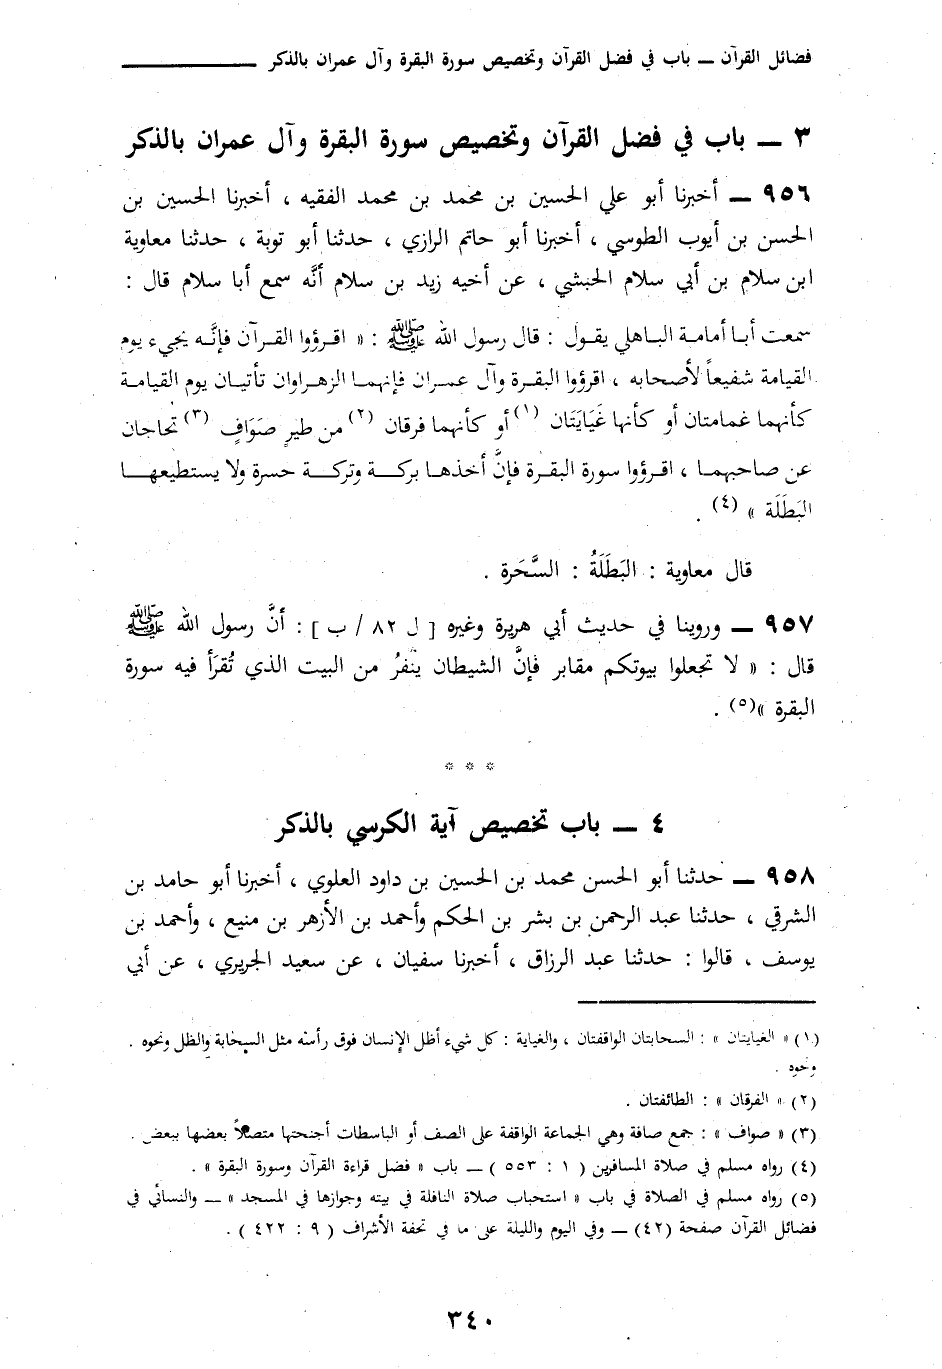 فضائل القرآن ــ باب في فضل القرآن وتخصيص سورة البقرة وآل عمران بالذكر
٣ ــ باب في فضل القرآن وتخصيص سورة البقرة وآل عمران بالذكر
٩٥٦ ــ أخبرنا أبو علي الحسين بن محمد بن محمد الفقيه ، أخبرنا الحسين بن
الحسن بن أيوب الطوسي ، أخبرنا أبو حاتم الرازي ، حدثنا أبو توبة ، حدثنا معاوية
ابن سلام بن أبي سلام الحبشي ، عن أخيه زيد بن سلام أنَّه سمع أبا سلام قال :
سمعت أبا أمامة الباهلي يقول : قال رسول الله ﷺ : « اقرؤوا القرآن فإنَّه يجيء يوم
القيامة شفيعاً لأصحابه ، اقرؤوا البقرة وآل عمران فإنهما الزهراوان تأتيان يوم القيامة
كأنهما غمامتان أو كأنها غَيَايَتَان (١) أو كأنهما فرقان (٢) من طيرٍ صَوَافٍ (٣) تحاجان
عن صاحبهما ، اقرؤوا سورة البقرة فإنَّ أخذها بركة وتركة حسرة ولا يستطيعها
البَطَلَة » (٤) .
قال معاوية : البَطَلَةُ : السَّحَرة .
٩٥٧ ــ وروينا في حديث أبي هريرة وغيره [ ل ٨٢ / ب ] : أنَّ رسول الله ﷺ
قال : « لا تجعلوا بيوتكم مقابر فإنَّ الشيطان ينفرُ من البيت الذي تُقرَأ فيه سورة
البقرة »(٥) .
* * *
٤ ــ باب تخصيص آية الكرسي بالذكر
٩٥٨ ــ حدثنا أبو الحسن محمد بن الحسين بن داود العلوي ، أخبرنا أبو حامد بن
الشرقي ، حدثنا عبد الرحمن بن بشر بن الحكم وأحمد بن الأزهر بن منيع ، وأحمد بن
يوسف ، قالوا : حدثنا عبد الرزاق ، أخبرنا سفيان ، عن سعيد الجريري ، عن أبي
(١) « الغيايتان » : السحابتان الواقفتان ، والغياية : كل شيء أظل الإنسان فوق رأسه مثل السحابة والظل ونحوه .
ونحوه .
(٢) « الفرقان » : الطائفتان .
(٣) « صواف » : جمع صافة وهي الجماعة الواقفة على الصف أو الباسطات أجنحتها متصلاً بعضها ببعض .
(٤) رواه مسلم في صلاة المسافرين ( ١ : ٥٥٣ ) ــ باب « فضل قراءة القرآن وسورة البقرة » .
(٥) رواه مسلم في الصلاة في باب « استحباب صلاة النافلة في بيته وجوازها في المسجد » ــ والنسائي في
فضائل القرآن صفحة (٤٢) ــ وفي اليوم والليلة على ما في تحفة الأشراف ( ٩ : ٤٢٢ ) .
٣٤٠